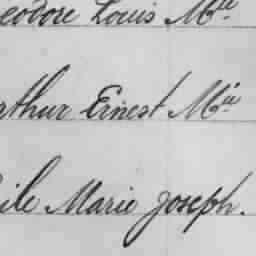 eodore Louis Mie.
arthur Ernest Mie
ile Marie Joseph.